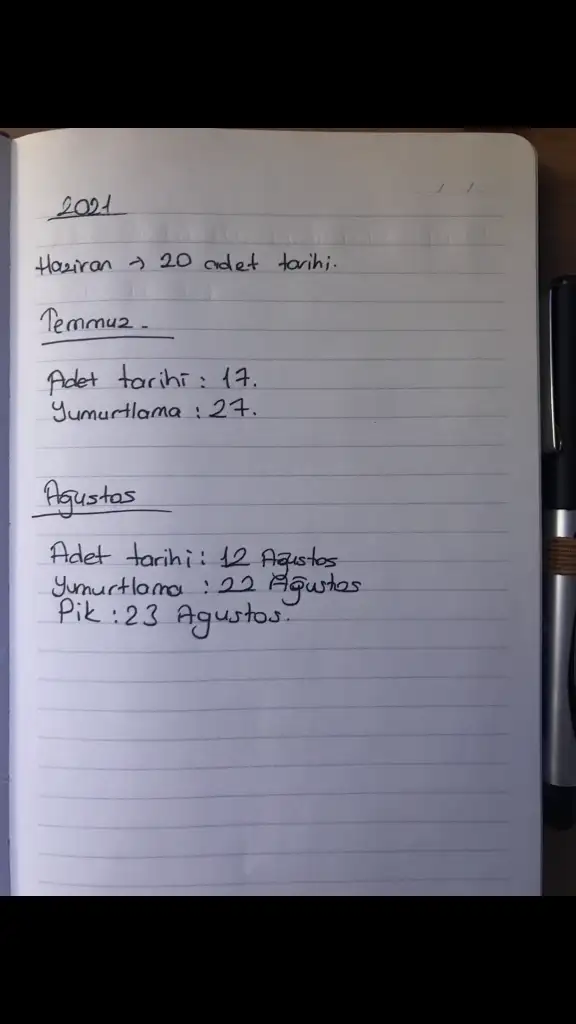 2021
Haziran → 20 adet tarihi.
Temmuz.
Adet tarihi : 17.
Yumurtlama : 27.
Agustos
Adet tarihi : 12 Agustos
Yumurtlama : 22 Ağustos
Pik : 23 Agustos.